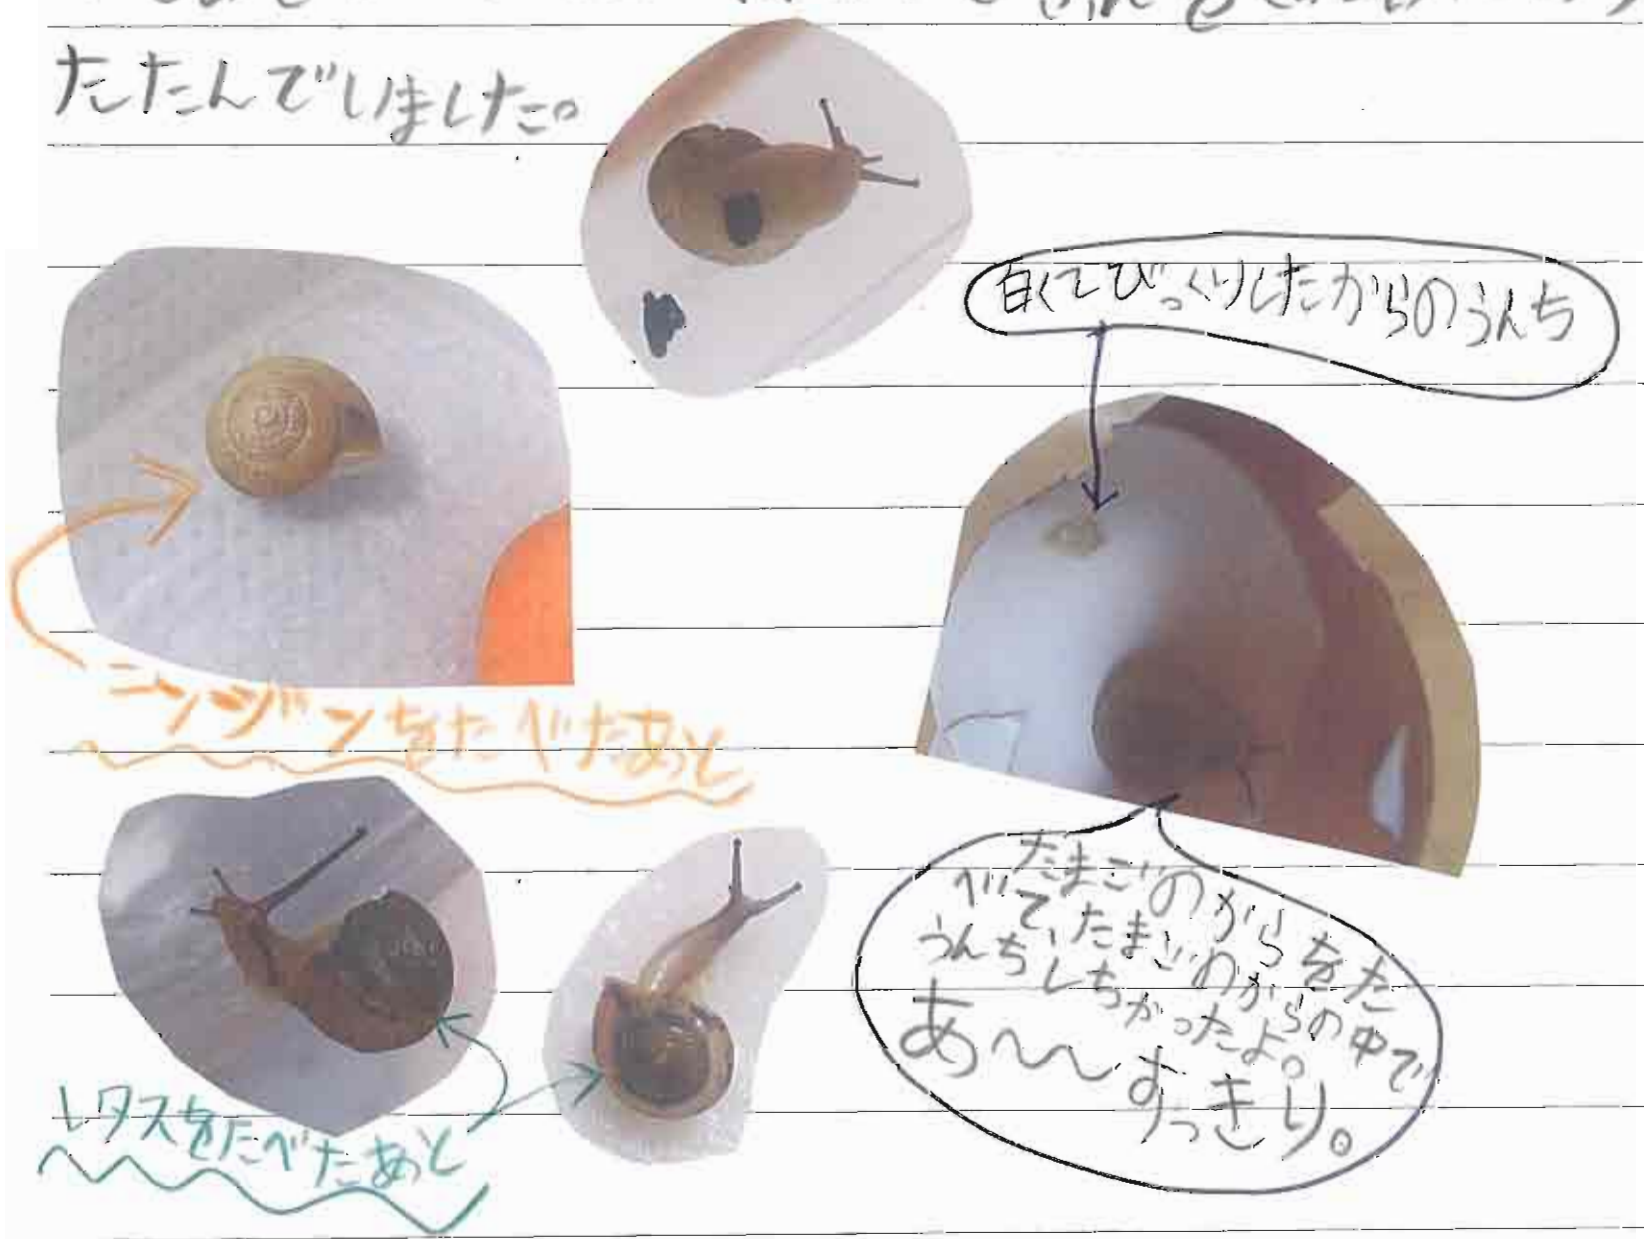 たたんでしました。
白くてびっくりしたからのうんち
ニンジンをたべたあと
たまごのからをた
べて、たまごのからの中で
うんちしちがったよ。
あ〜〜すっきり。
レタスをたべたあと